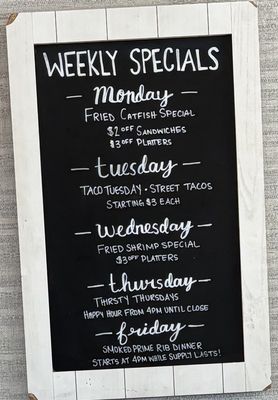 WEEKLY SPECIALS
— Monday —
FRIED CATFISH SPECIAL
$2 OFF SANDWICHES
$3 OFF PLATTERS
— tuesday —
TACO TUESDAY · STREET TACOS
STARTING $3 EACH
— wednesday —
FRIED SHRIMP SPECIAL
$3 OFF PLATTERS
— thursday —
THIRSTY THURSDAYS
HAPPY HOUR FROM 4PM UNTIL CLOSE
— friday —
SMOKED PRIME RIB DINNER
STARTS AT 4PM WHILE SUPPLY LASTS!